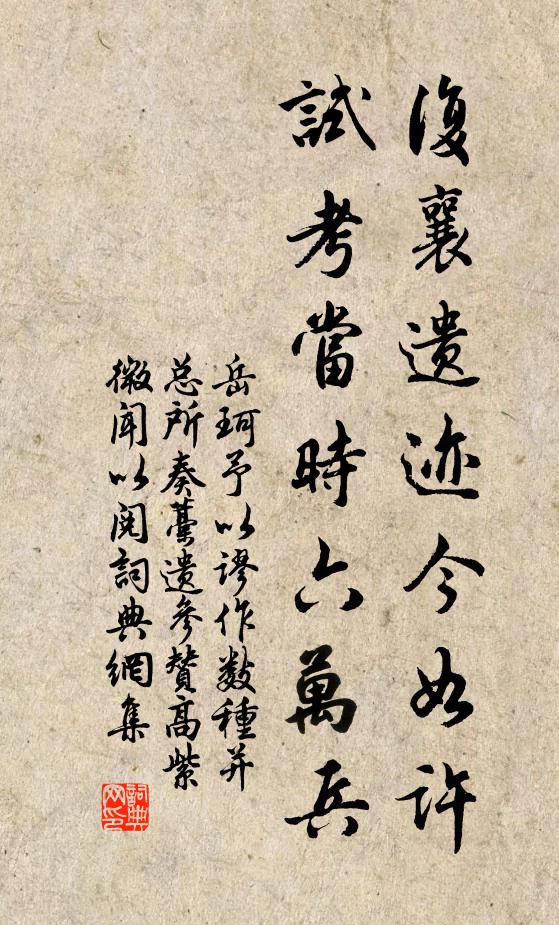 復襄遺迹今如許
試考當時六萬兵
岳珂予以謬作數種并
总所奏藁遺參贊高紫
微聞以閱詞典網集
詞典
网印